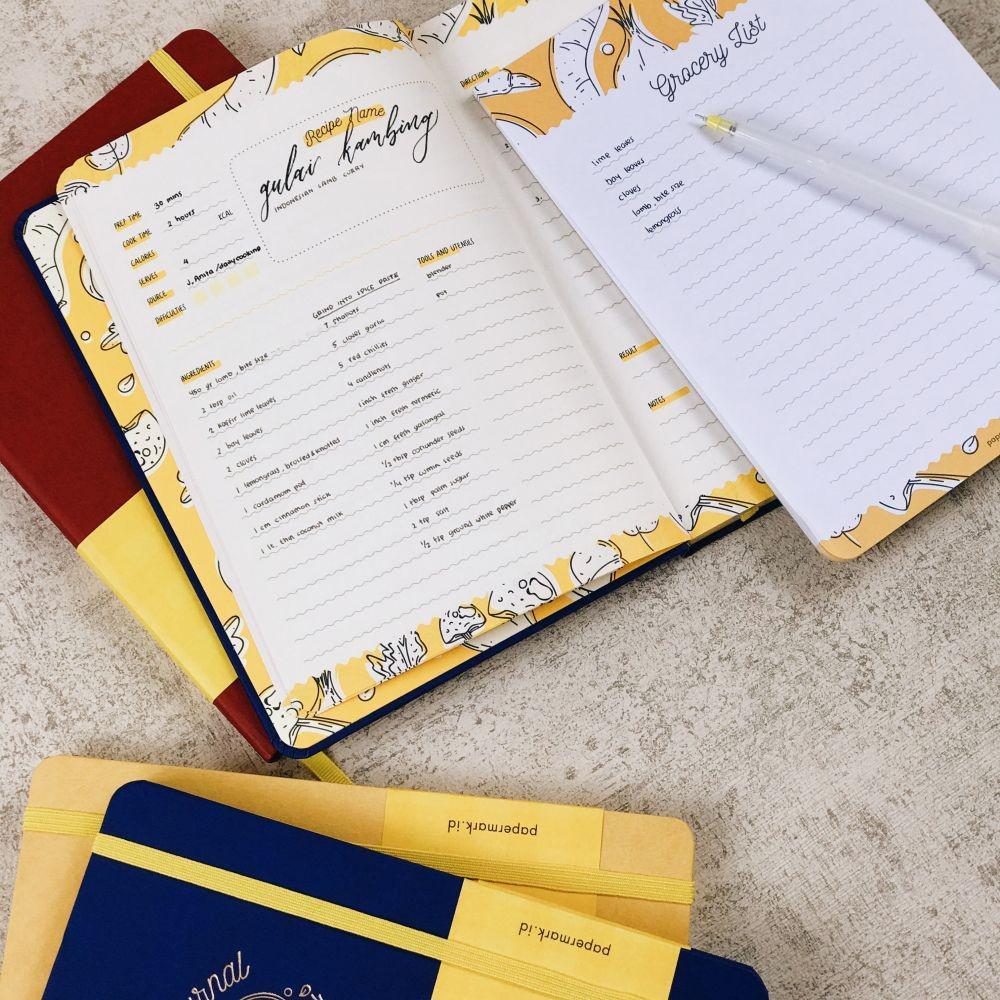 Recipe Name
gulai kambing
INDONESIAN LAMB CURRY
PREP TIME 30 mins
COOK TIME 2 hours
CALORIES KCAL
SERVES 4
SOURCE J. Anita/dailycooking
DIFFICULTIES
INGREDIENTS
450 gr lamb, bite size
2 tbsp oil
2 kaffir lime leaves
2 bay leaves
2 cloves
1 lemongrass, bruised & knotted
1 cardamom pod
1 cm cinnamon stick
1 lt. thin coconut milk
GRIND INTO SPICE PASTE
7 shallots
5 cloves garlic
5 red chillies
4 candlenuts
1 inch fresh ginger
1 inch fresh turmeric
1 cm fresh galangal
1/2 tbsp coriander seeds
1/4 tsp cumin seeds
1 tbsp palm sugar
2 tsp salt
1/2 tsp ground white pepper
TOOLS AND UTENSILS
blender
pot
DIRECTIONS
2.
3.
RESULT
NOTES
Grocery List
lime leaves
bay leaves
cloves
lamb, bite size
lemongrass
pap
papermark.id
papermark.id
rnal